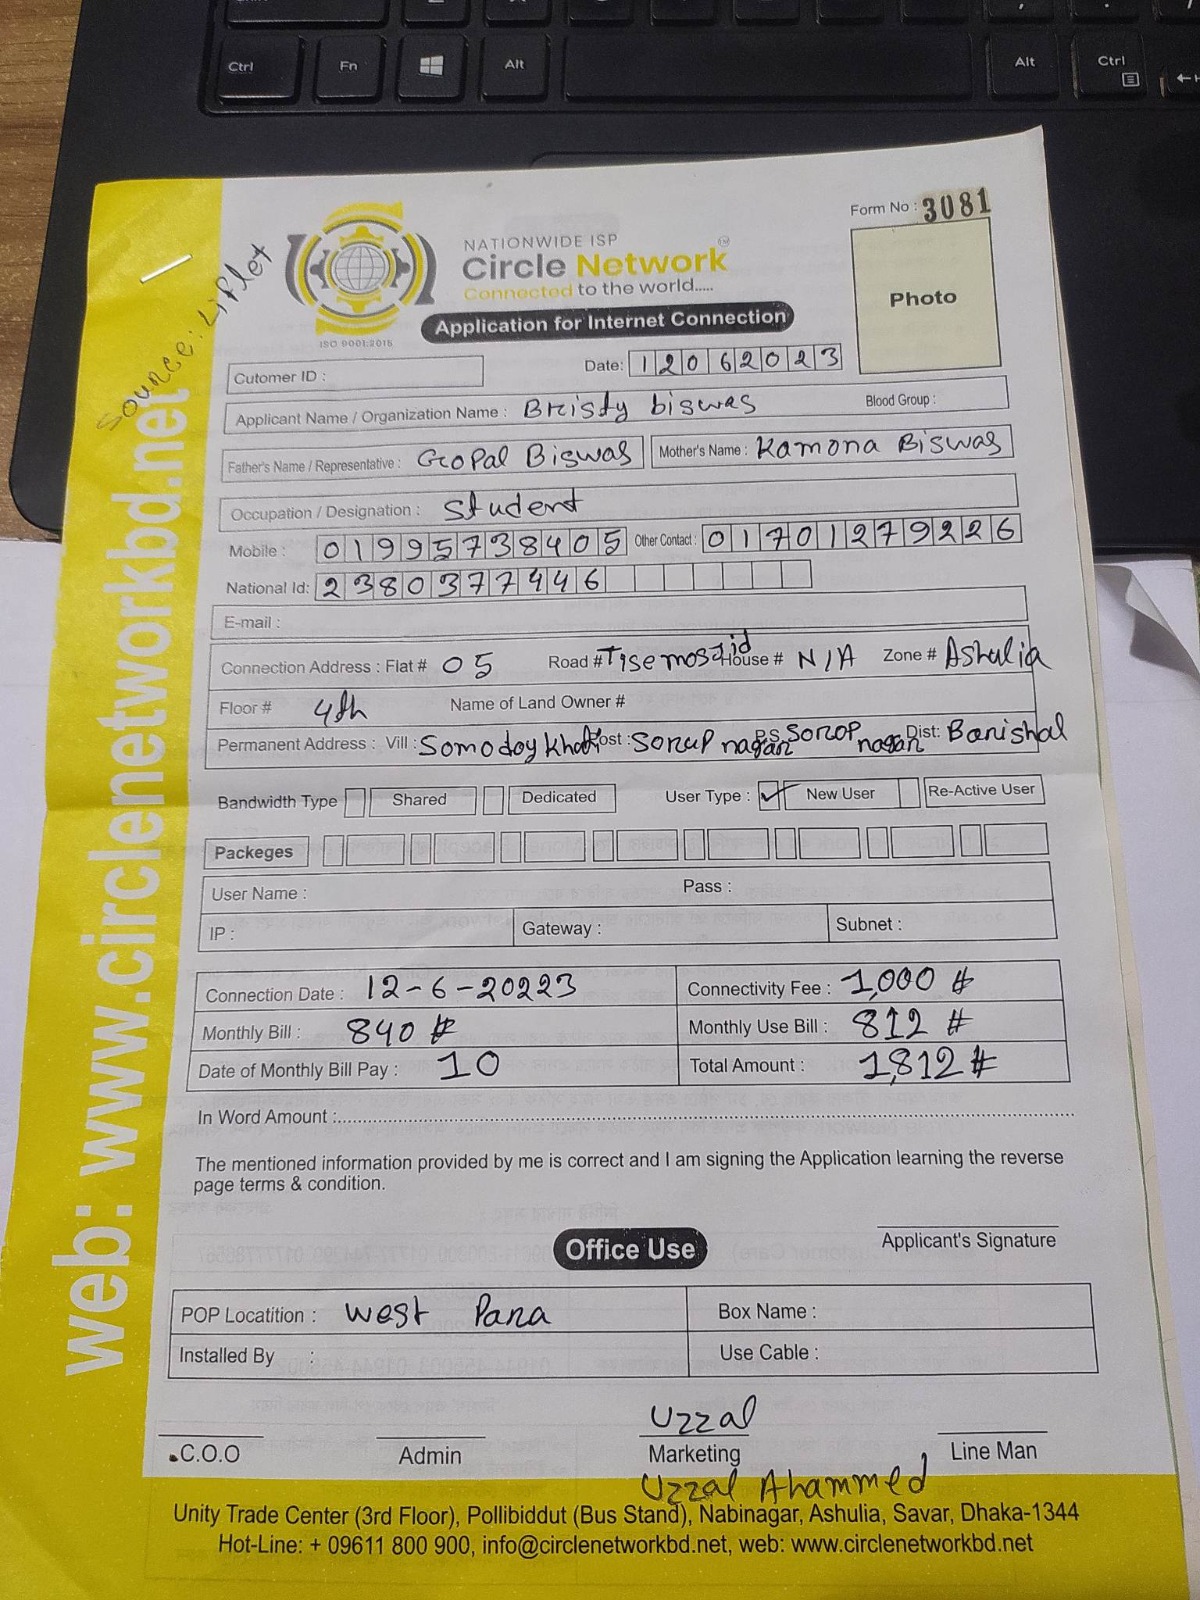 Ctrl Fn Alt Alt Ctrl
Form No : 3081
Source: Liflet
NATIONWIDE ISP
Circle Network
Connected to the world.....
ISO 9001:2015
Application for Internet Connection
Photo
Cutomer ID :
Date: 12062023
Applicant Name / Organization Name : Bristy biswas Blood Group :
Father's Name / Representative : Gopal Biswas Mother's Name : Kamona Biswas
Occupation / Designation : Student
Mobile : 01995738405 Other Contact : 01701279226
National Id: 2380377446
E-mail :
Connection Address : Flat # 05 Road # House # N/A Zone # Ashulia
Floor # 4th Name of Land Owner #
Permanent Address : Vill : Post : Sorup nagar P.S. Sorop nagar Dist: Barishal
Bandwidth Type Shared Dedicated User Type : ✓ New User Re-Active User
Packeges
User Name : Pass :
IP : Gateway : Subnet :
Connection Date : 12-6-20223 Connectivity Fee : 1,000 #
Monthly Bill : 840 # Monthly Use Bill : 812 #
Date of Monthly Bill Pay : 10 Total Amount : 1,812 #
In Word Amount :
The mentioned information provided by me is correct and I am signing the Application learning the reverse
page terms & condition.
Applicant's Signature
Office Use
POP Locatition : West Para Box Name :
Installed By : Use Cable :
Uzzal
C.O.O Admin Marketing Line Man
Uzzal Ahammed
Unity Trade Center (3rd Floor), Pollibiddut (Bus Stand), Nabinagar, Ashulia, Savar, Dhaka-1344
Hot-Line: + 09611 800 900, info@circlenetworkbd.net, web: www.circlenetworkbd.net
web: www.circlenetworkbd.net